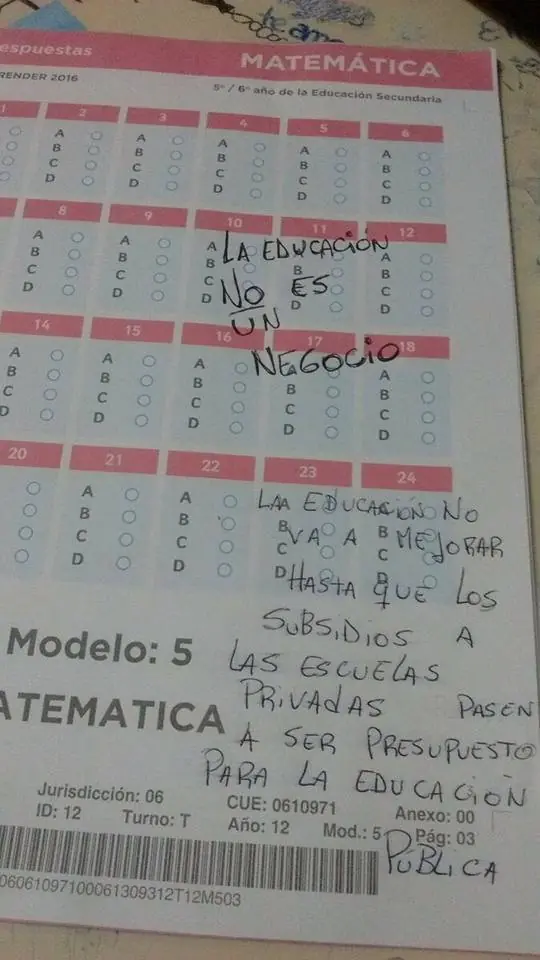 te am
espuestas
MATEMÁTICA
RENDER 2016
5º / 6º año de la Educación Secundaria
1 2 3 4 5 6
A A A A A
B B B B B
C C C C C
D D D D D
8 9 10 11 12
A A A A
B B B
C C C C
D D D D D
LA EDUCACIÓN
NO ES
UN
NEGOCIO
14 15 16 17 18
A A A A
B B B B B
C C C C C
D D D D D
20 21 22 23 24
A A
B B B B
C C C C
D D D D
LAA EDUCACIÓN NO
VA A MEJORAR
HASTA QUE LOS
SUBSIDIOS A
LAS ESCUELAS
PRIVADAS PASEN
A SER PRESUPUESTO
PARA LA EDUCACIÓN
PÚBLICA
Modelo: 5
ATEMATICA
Jurisdicción: 06 CUE: 0610971 Anexo: 00
ID: 12 Turno: T Año: 12 Mod.: 5 Pág: 03
06061097100061309312T12M503